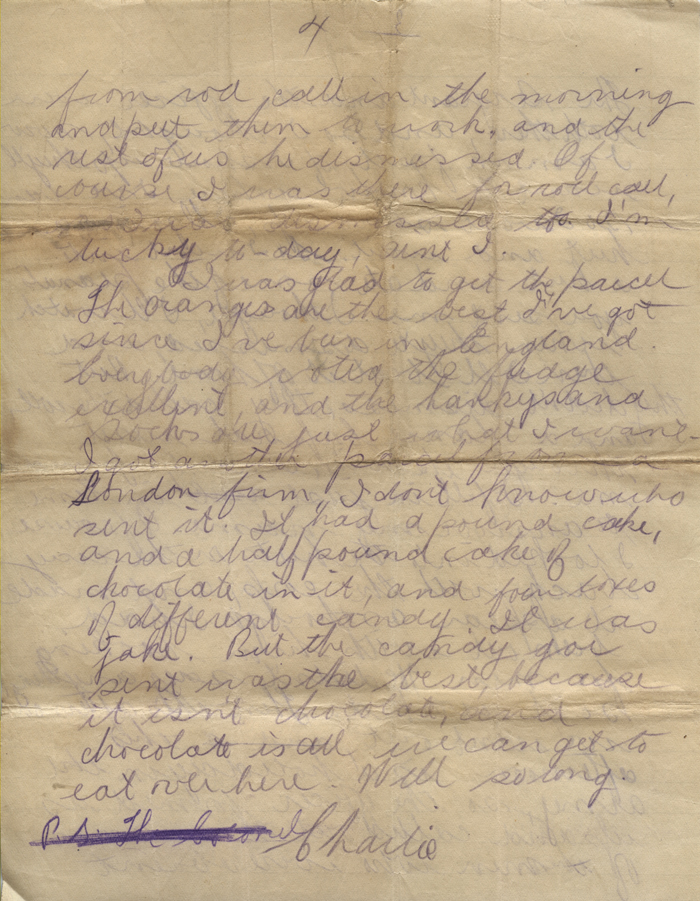 4
from rool call in the morning
and put them to work, and the
rest of us he dismissed. Of
course I was there for rool call,
I'm
lucky to-day, aint I.
I was glad to get the parcel
The oranges are the best I've got
since I've been in England.
Everybody voted the fudge
excellent, and the hankys and
socks are just what I want.
I got another parcel from a
London firm, I dont know who
sent it. It had a pound cake,
and a half pound cake of
chocolate in it, and four boxes
of different candy. It was
jake. But the candy you
sent was the best, because
it isnt chocolate, and
chocolate is all we can get to
eat over here. Well so long.
P.S. The Colonel Charlie